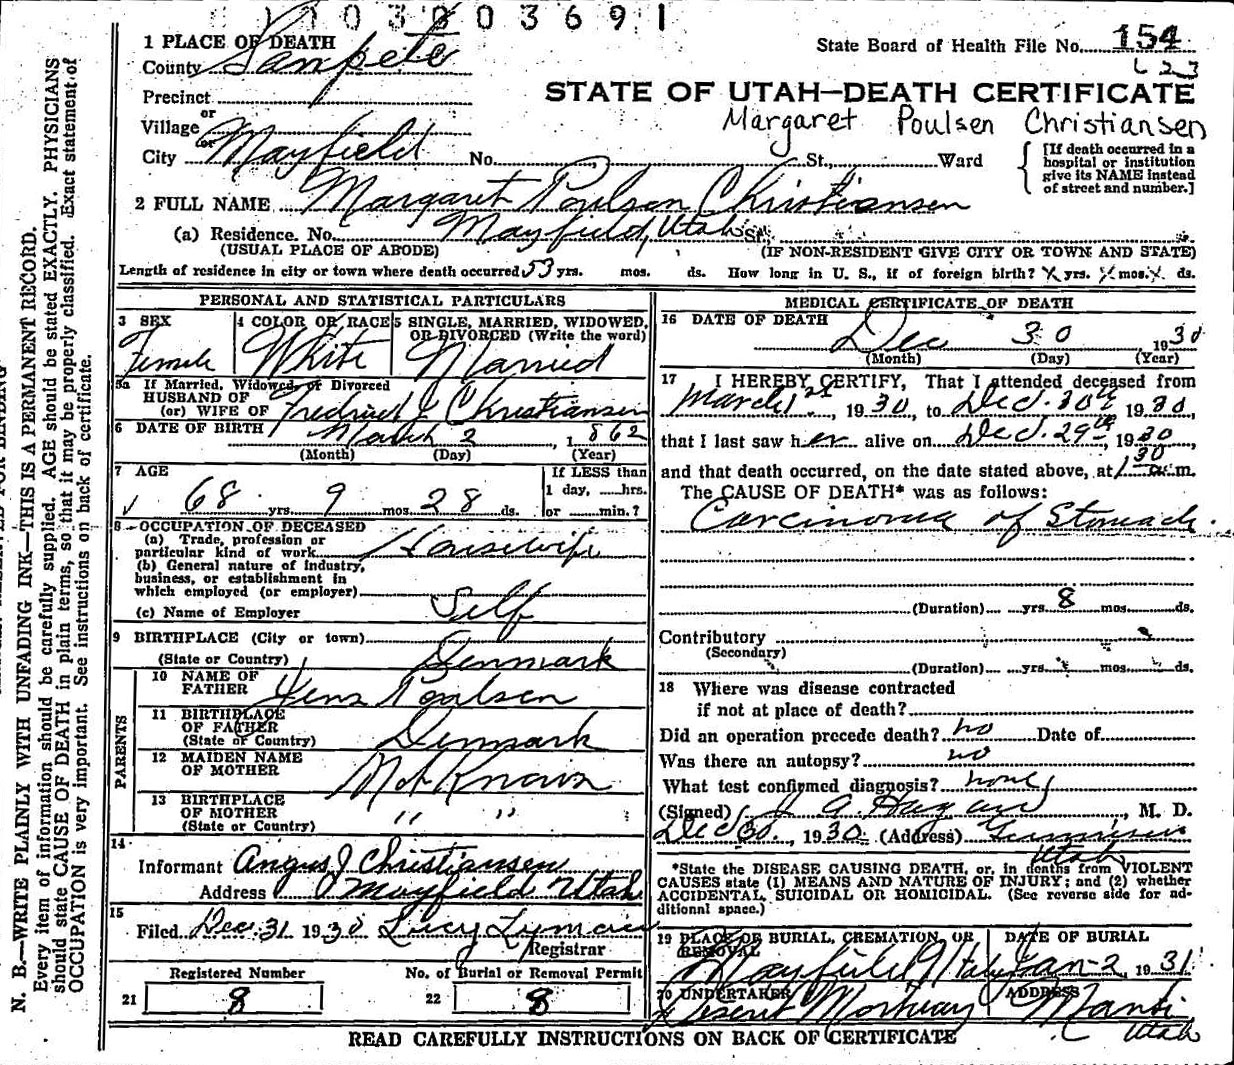 1003003691
1 PLACE OF DEATH
County Sanpete
State Board of Health File No. 154
L 23
Precinct
or
Village
or
City Mayfield No. St., Ward
STATE OF UTAH—DEATH CERTIFICATE
Margaret Poulsen Christiansen
[If death occurred in a
hospital or institution
give its NAME instead
of street and number.]
2 FULL NAME Margaret Poulsen Christiansen
(a) Residence. No. Mayfield, Utah St.,
(USUAL PLACE OF ABODE) (IF NON-RESIDENT GIVE CITY OR TOWN AND STATE)
Length of residence in city or town where death occurred 53 yrs. mos. ds. How long in U. S., if of foreign birth? X yrs. X mos. X ds.
PERSONAL AND STATISTICAL PARTICULARS
3 SEX
Female
4 COLOR OR RACE
White
5 SINGLE, MARRIED, WIDOWED,
OR DIVORCED (Write the word)
Married
5a If Married, Widowed, or Divorced
HUSBAND OF
(or) WIFE OF Fredrick J Christiansen
6 DATE OF BIRTH March 2, 1862
(Month) (Day) (Year)
7 AGE
68 yrs. 9 mos. 28 ds.
If LESS than
1 day, hrs.
or min.?
8 OCCUPATION OF DECEASED
(a) Trade, profession or
particular kind of work Housewife
(b) General nature of industry,
business, or establishment in
which employed (or employer)
(c) Name of Employer Self
9 BIRTHPLACE (City or town)
(State or Country) Denmark
PARENTS
10 NAME OF
FATHER Jens Poulsen
11 BIRTHPLACE
OF FATHER
(State or Country) Denmark
12 MAIDEN NAME
OF MOTHER Not Known
13 BIRTHPLACE
OF MOTHER " "
(State or Country)
14
Informant Angus J Christiansen
Address Mayfield Utah
15
Filed Dec. 31 1930 Lucy Lyman
Registrar
Registered Number
21 8
No. of Burial or Removal Permit
22 8
MEDICAL CERTIFICATE OF DEATH
16 DATE OF DEATH
Dec 30 1930
(Month) (Day) (Year)
17 I HEREBY CERTIFY, That I attended deceased from
March 1st, 1930, to Dec. 30th, 1930,
that I last saw her alive on Dec. 29th, 1930,
and that death occurred, on the date stated above, at 1 30 a.m.
The CAUSE OF DEATH* was as follows:
Carcinoma of Stomach.
(Duration) yrs. 8 mos. ds.
Contributory
(Secondary)
(Duration) yrs. mos. ds.
18 Where was disease contracted
if not at place of death?
Did an operation precede death? no Date of
Was there an autopsy? no
What test confirmed diagnosis? none
(Signed) J A Hagan, M. D.
Dec 30, 1930 (Address) Gunnison
Utah
*State the DISEASE CAUSING DEATH, or, in deaths from VIOLENT
CAUSES state (1) MEANS AND NATURE OF INJURY; and (2) whether
ACCIDENTAL, SUICIDAL OR HOMICIDAL. (See reverse side for ad-
ditional space.)
19 PLACE OF BURIAL, CREMATION, OR
REMOVAL
Mayfield Utah
DATE OF BURIAL
Jan-2, 1931
20 UNDERTAKER
Deseret Mortuary
ADDRESS
Manti
Utah
READ CAREFULLY INSTRUCTIONS ON BACK OF CERTIFICATE
N. B.—WRITE PLAINLY WITH UNFADING INK—THIS IS A PERMANENT RECORD.
Every item of information should be carefully supplied. AGE should be stated EXACTLY. PHYSICIANS
should state CAUSE OF DEATH in plain terms, so that it may be properly classified. Exact statement of
OCCUPATION is very important. See instructions on back of certificate.